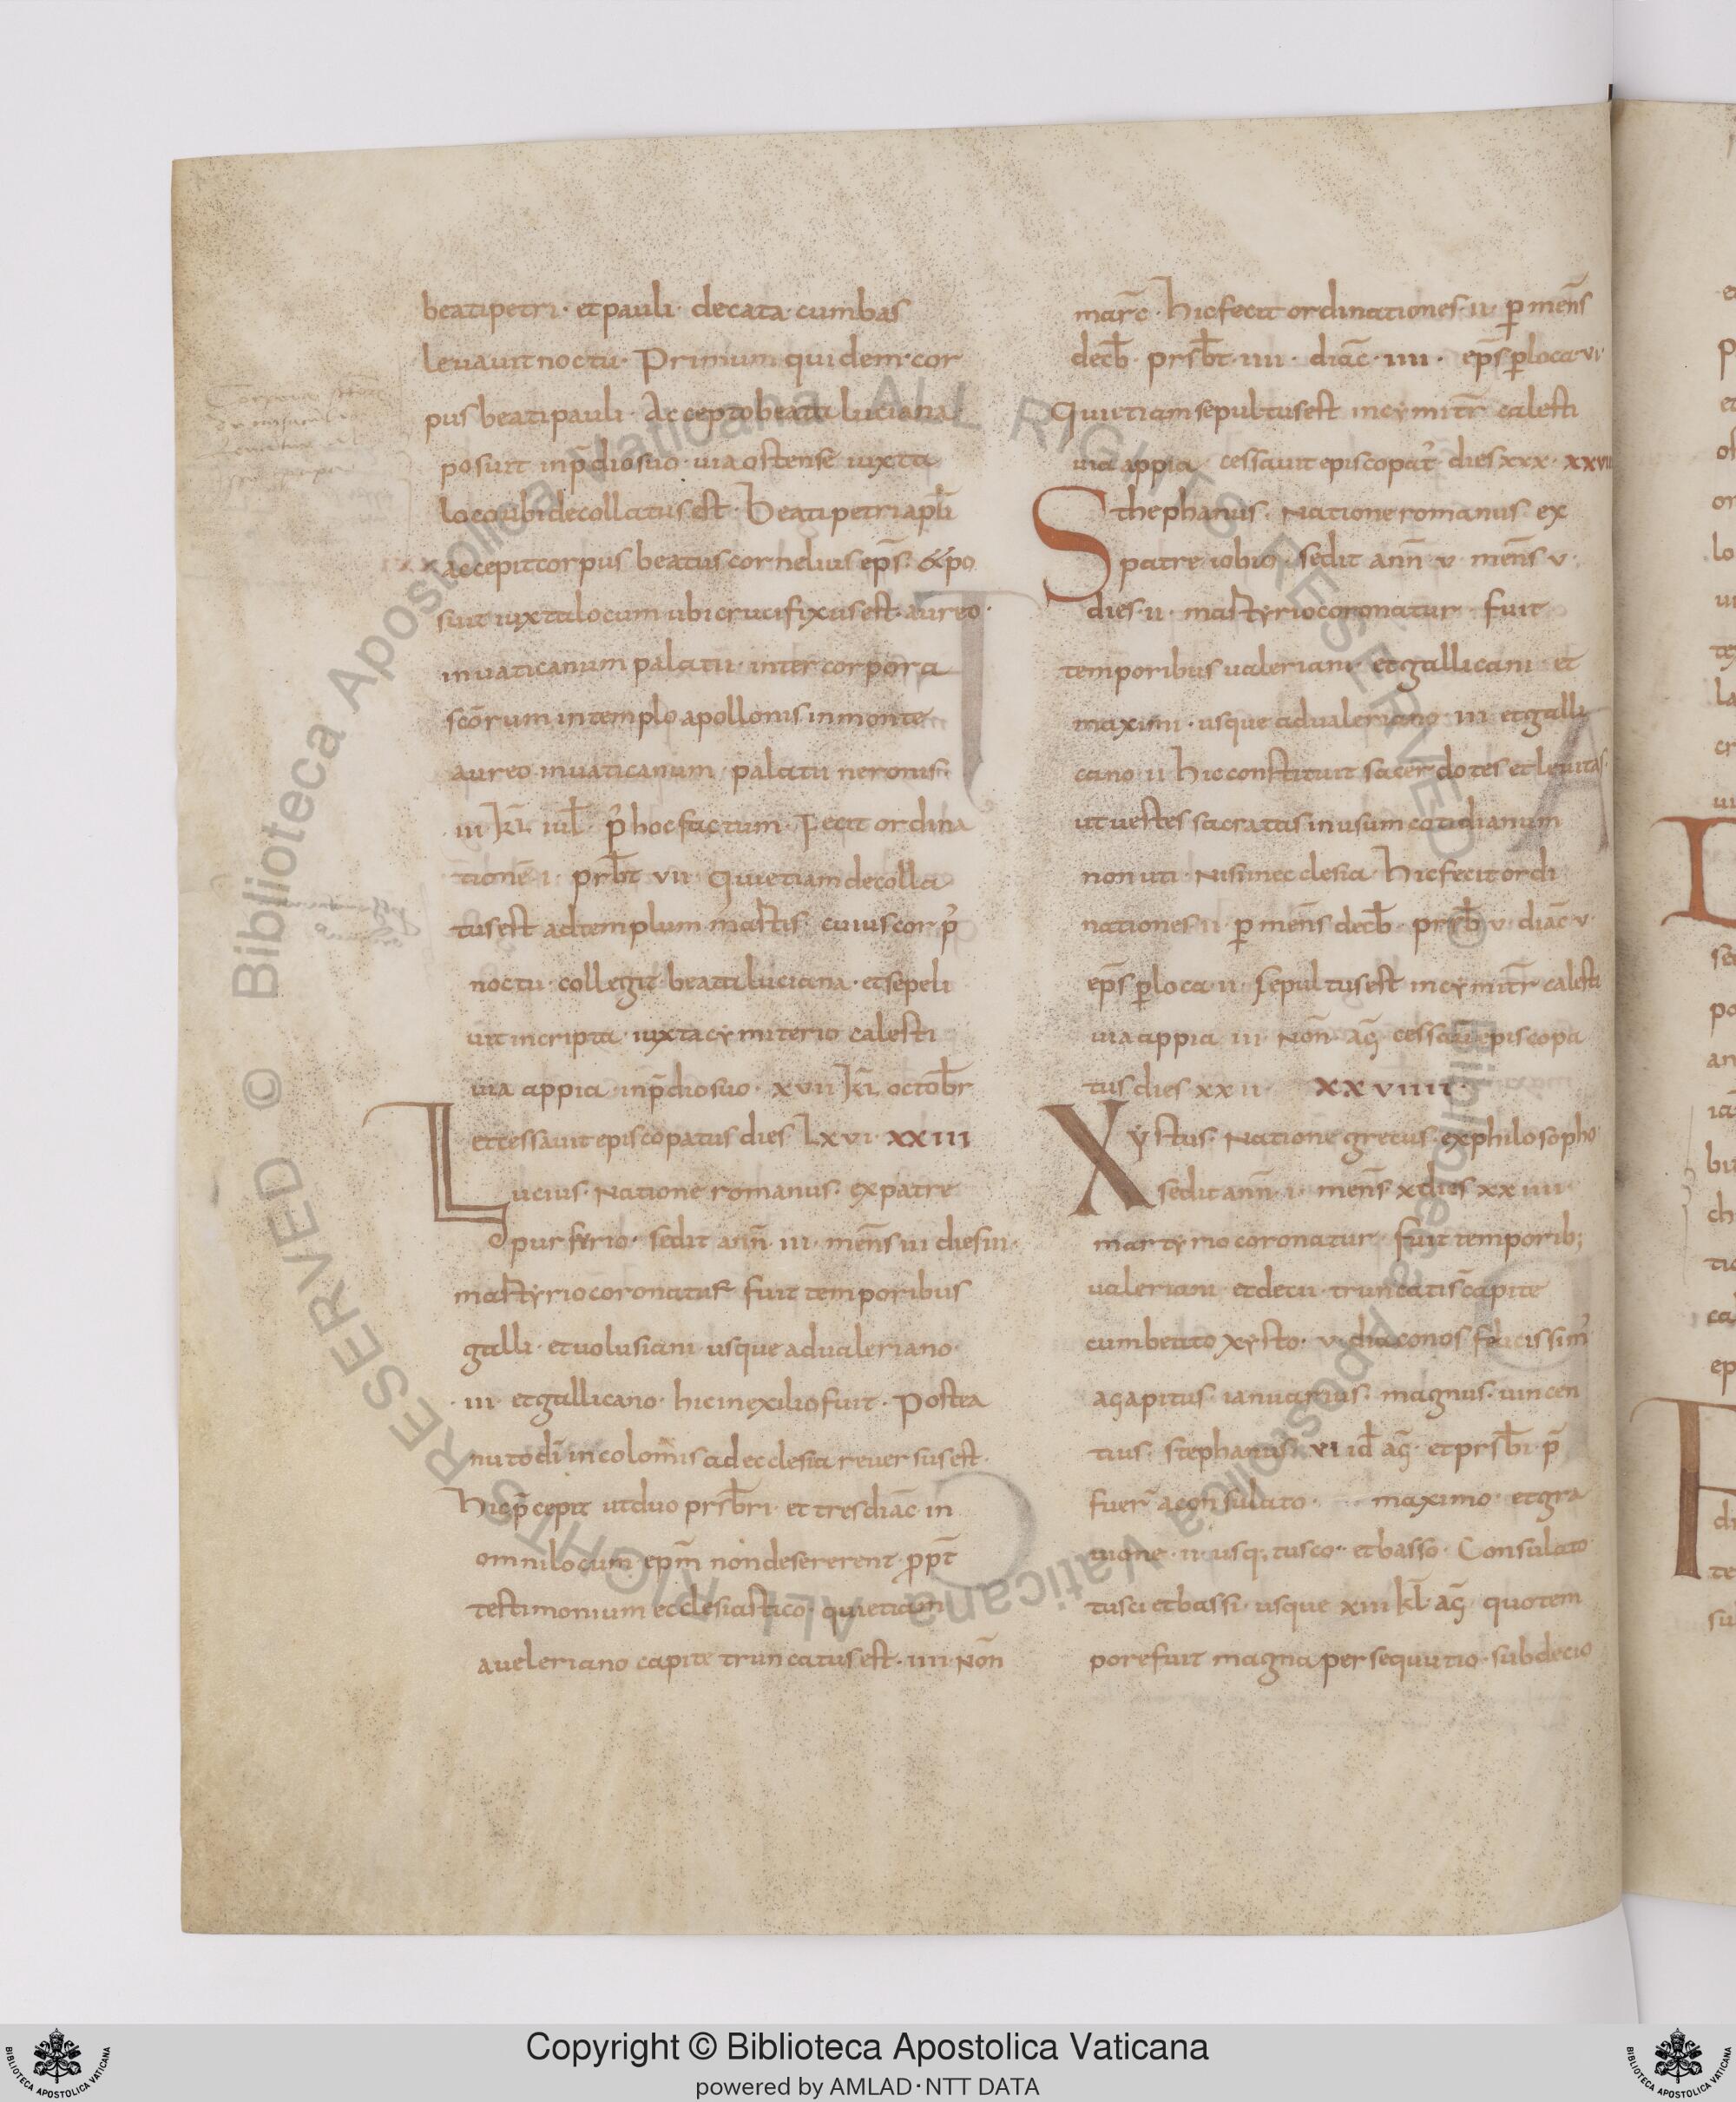 beatipetri · etpauli · decata cumbas
leuauit noctu · Primum quidem · cor
pus beatipauli · Accepto beata luciana
posuit inp̄dio suo · uia ostense iuxta
loco ubi decollatus est · Beatipetri apl̄i
accepit corpus beatus cornelius ep̄s · & po
suit iuxta locum ubi crucifixus est · aureo ·
in uaticanum palatii · inter corpora
sc̄orum in templo apollonis in monte
aureo in uaticanum palatii neronis ·
· iii kl̄ iul̄ · p̄ hoc factum · Fecit ordina
tionē · i · prb̄t vii · Qui etiam decolla
tus est ad templum martis · cuius corp̄
noctu · collegit · beata luciana · et sepeli
uit in cripta · iuxta cymiterio calesti
uia appia · inp̄dio suo · xvii kl̄ octob̄r
et cessauit episcopatus dies Lxvi · xxiii
Lucius · Natione romanus · ex patre
purfyrio · sedit ann̄ · iii · mens̄ iii dies iii ·
martyrio coronatur fuit temporibus
galli · et uolusiani usque ad ualeriano ·
· iii · et gallicano · hic in exilio fuit · Postea
nutu dī incolomis ad ecclesia reuersus est ·
hic p̄cepit ut duo prsb̄ri · et tres diac̄ in
omni locum ep̄m non desererent p̄pt̄
testimonium ecclesiastico · qui etiam
a ueleriano capite truncatus est · iiii Non̄
marc̄ · hic fecit ordinationes · ii · p mens̄
decb̄ · prsb̄t · iiii · diac̄ · iiii · ep̄s p loca · vi ·
Qui etiam sepultus est in cymitr̄ calesti
uia appia cessauit episcopat̄ dies xxx · xxvii
Sthephanus · Natione romanus ex
patre iobio · sedit ann̄ v · mens̄ v ·
dies · ii · martyrio coronatur · fuit
temporibus ualeriani · et gallicani · et
maximi · usque ad ualeriano · iii · et galli
cano · ii hic constituit sacerdotes et leuitas ·
ut uestes sacratas in usum cotidianum
non uti · Nisi in ecclesia · hic fecit ordi
nationes · ii · p mens̄ decb̄ · prsb̄ v · diac̄ v ·
ep̄s p loca · ii · Sepultus est in cymitr̄ calesti
uia appia · iii · Non̄ · aḡ · cessauit episcopa
tus dies xxii · xxviiii ·
Xystus · Natione grecus · ex philosopho
sedit ann̄ · i · mens̄ · x dies xxiiii
martyrio coronatur · fuit temporib;
ualeriani · et decii · truncati s̄ capite
cum beato xysto · v · diaconos felicissim̄
agapitus · ianuarius · magnus · uincen
tius · stephanus · vi id̄ aḡ · et prsb̄i · p̄
fuer̄ a consulato · maximo · et gra
uione · ii · usq; tusco · et basso · Consulato
tusci et bassi · usque xiii kl̄ aḡ quo tem
pore fuit magna persequutio · sub decio
Copyright © Biblioteca Apostolica Vaticana
powered by AMLAD · NTT DATA